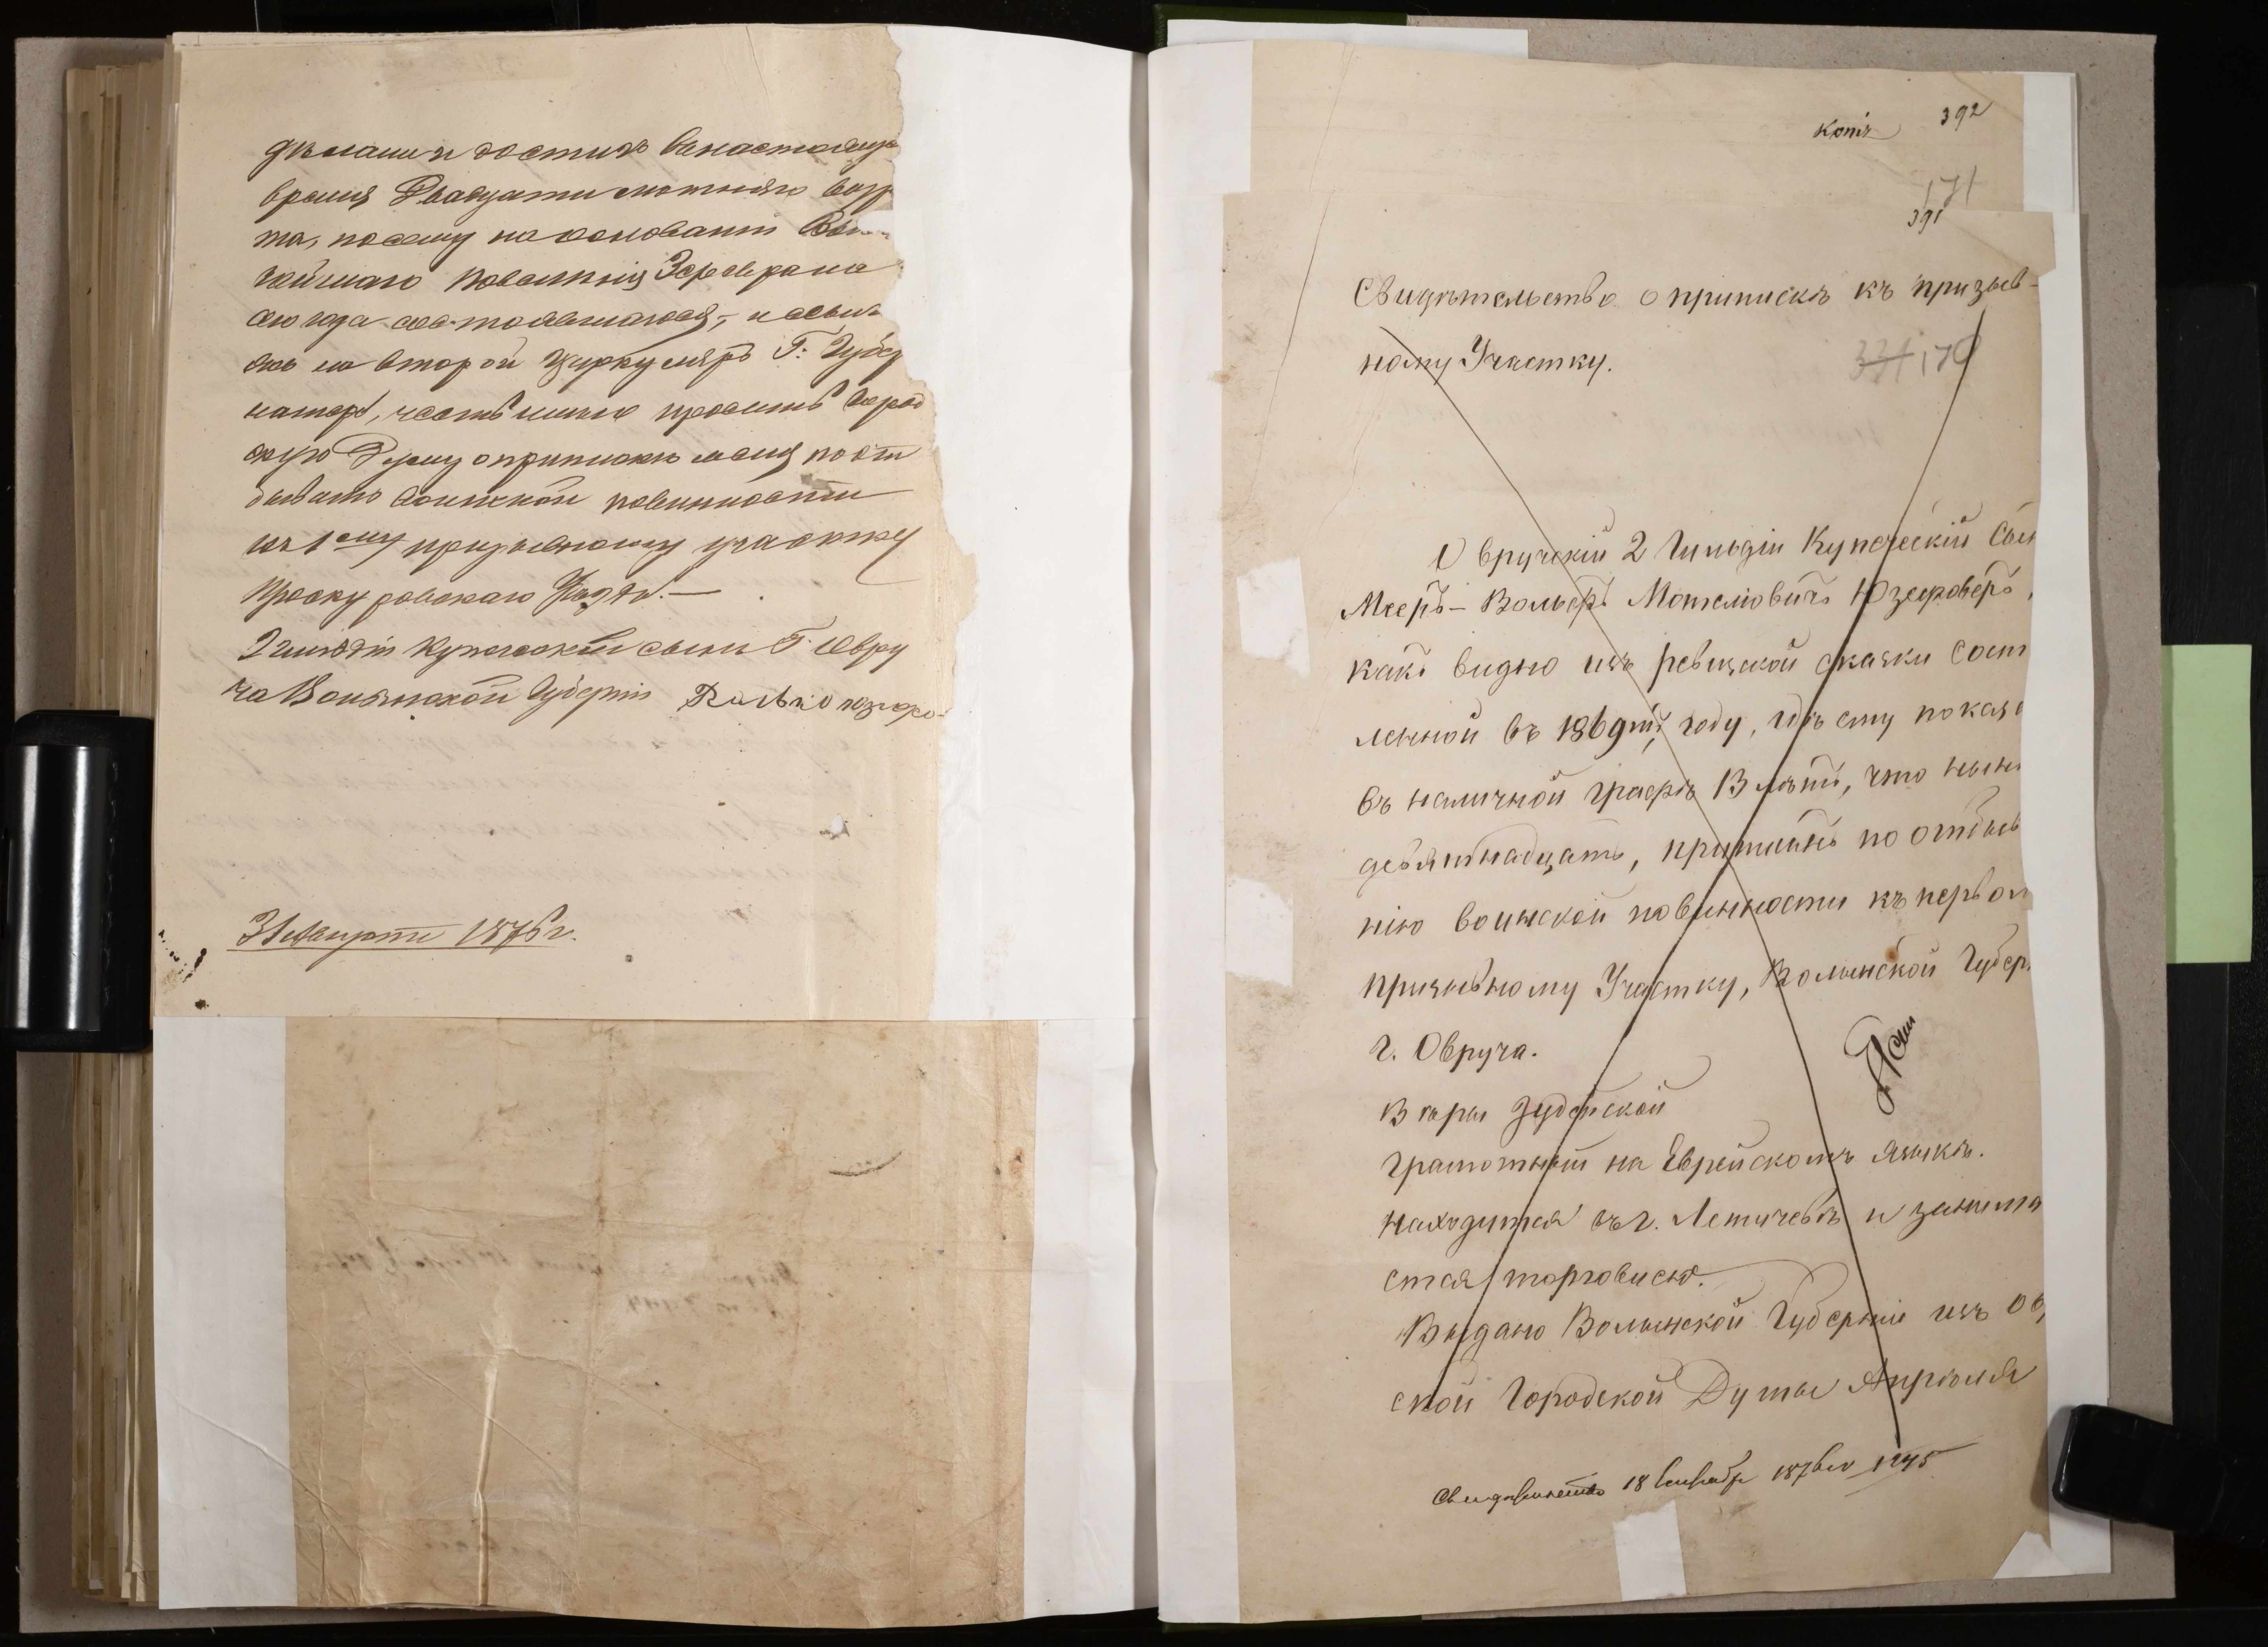 дѣлами и достигъ въ настояще
время Двадцати лѣтняго возр
та, посему на основаніи Высо
чайшаго повелѣнія 3 февраля
сего года состоявшагося, и ссыла
ясь на второй Циркуляръ Г: Губер
натора, честь имѣю просить Город
скую Думу о припискѣ меня по от
быванію воинской повинности
къ 1му призывному участку
Проскуровскаго Уѣзда.—
2 гильдіи Купеческій сынъ Г. Овру
ча Волынской Губерніи Волько Юзефо-
31 Марта 1876 г.
Копія 392
171
391
Свидѣтельство о припискѣ къ призыв-
ному Участку.
331 170
Овручскій 2 Гильдіи Купеческій Сын
Мееръ-Вольфъ Мотелiовичъ Юзефоверъ,
какъ видно изъ ревизской сказки сост
ленной въ 1869мъ году, гдѣ ему показ
въ наличной графѣ 13 лѣтъ, что нын
девятнадцать, приписанъ по отбыв
нію воинской повинности къ первом
призывному Участку, Волынской Губер.
г. Овруча.
Вѣры Іудейской
Грамотный на Еврейскомъ языкѣ.
Находится въ г. Летичевѣ и занима
ется торговлею.
Выдано Волынской Губерніи изъ Ов,
ской Городской Думы Апрѣля
Свидѣтельство 18 Сентября 1876го 1245